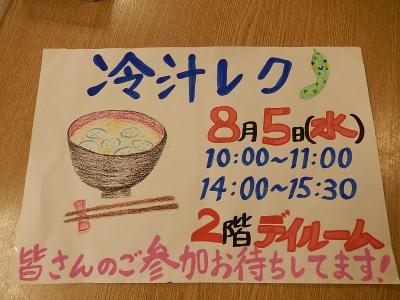 冷汁レク
8月5日(水)
10:00~11:00
14:00~15:30
2階デイルーム
皆さんのご参加お待ちしてます!